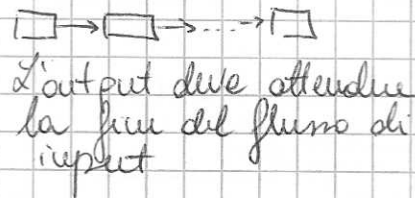 L'output deve attendere
la fine del flusso di
input